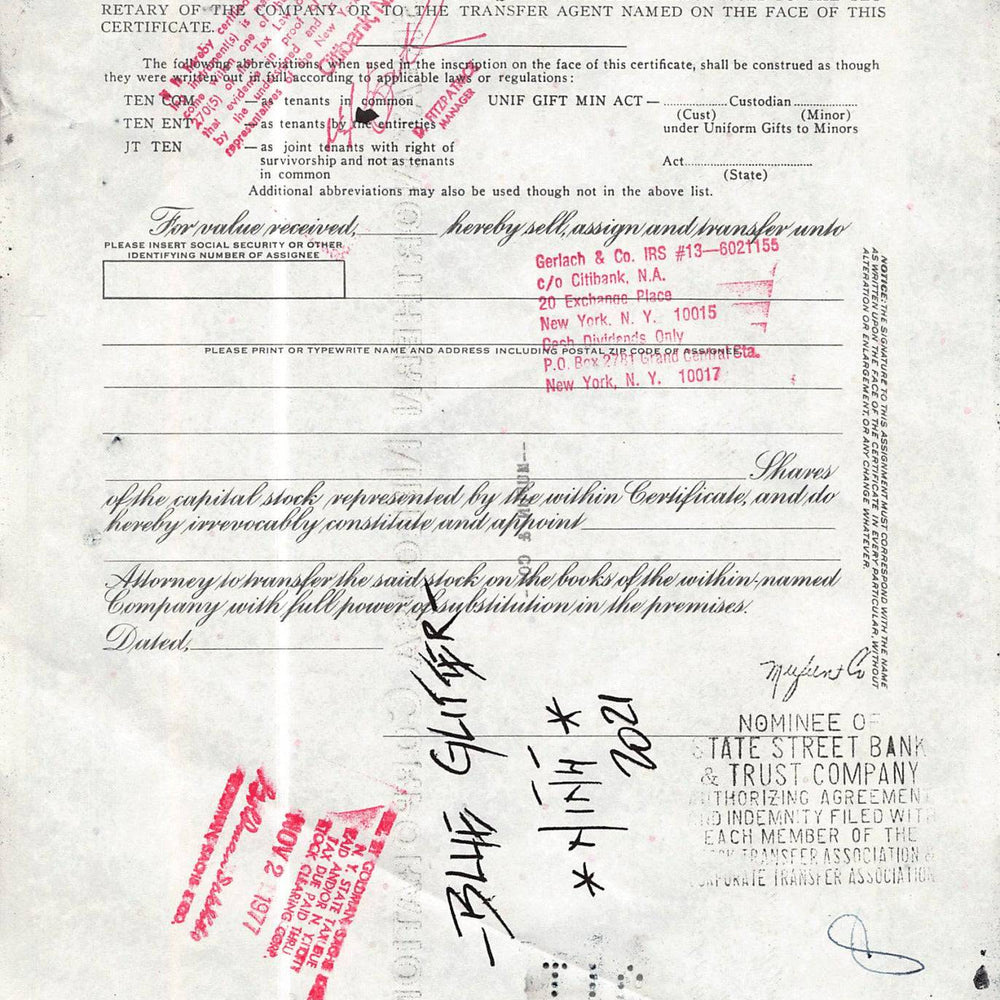 RETARY OF THE COMPANY OR TO THE TRANSFER AGENT NAMED ON THE FACE OF THIS
CERTIFICATE.
The following abbreviations, when used in the inscription on the face of this certificate, shall be construed as though
they were written out in full according to applicable laws or regulations:
TEN COM — as tenants in common
UNIF GIFT MIN ACT — Custodian
(Cust) (Minor)
TEN ENT — as tenants by the entireties
under Uniform Gifts to Minors
JT TEN — as joint tenants with right of
survivorship and not as tenants
in common
Act
(State)
Additional abbreviations may also be used though not in the above list.
FITZPATRICK
MANAGER
Citibank, N.
For value received, hereby sell, assign and transfer unto
PLEASE INSERT SOCIAL SECURITY OR OTHER
IDENTIFYING NUMBER OF ASSIGNEE
Gerlach & Co. IRS #13—6021155
c/o Citibank, N.A.
20 Exchange Place
New York, N. Y. 10015
Cash Dividends Only
P.O. Box 2781 Grand Central Sta.
New York, N. Y. 10017
PLEASE PRINT OR TYPEWRITE NAME AND ADDRESS INCLUDING POSTAL ZIP CODE OF ASSIGNEE
Shares
of the capital stock represented by the within Certificate, and do
hereby irrevocably constitute and appoint
Attorney to transfer the said stock on the books of the within-named
Company with full power of substitution in the premises.
Dated,
NOTICE: THE SIGNATURE TO THIS ASSIGNMENT MUST CORRESPOND WITH THE NAME
AS WRITTEN UPON THE FACE OF THE CERTIFICATE IN EVERY PARTICULAR, WITHOUT
ALTERATION OR ENLARGEMENT, OR ANY CHANGE WHATEVER.
2021
NOMINEE OF
STATE STREET BANK
& TRUST COMPANY
AUTHORIZING AGREEMENT
AND INDEMNITY FILED WITH
EACH MEMBER OF THE
STOCK TRANSFER ASSOCIATION &
CORPORATE TRANSFER ASSOCIATION
NOV 2 1977
N. Y. STATE TAX DUE
PAID AND/OR N. Y. CITY
TAX DUE PAID THRU
STOCK CLEARING CORP.